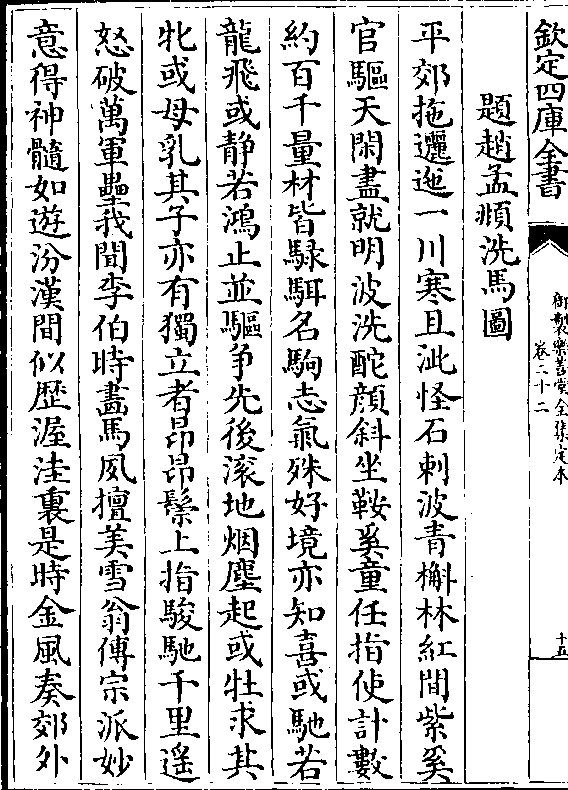 欽定四庫全書
御製樂善堂全集定本
卷二十二
十五
題趙孟頫洗馬圖
平郊拖邐迤一川寒且泚怪石刺波青槲林紅間紫奚
官驅天閑盡就明波洗酡顔斜坐鞍奚童任指使計數
約百千量材皆騄駬名駒志氣殊好境亦知喜或馳若
龍飛或静若鴻止並驅争先後滚地烟塵起或牡求其
牝或母乳其子亦有獨立者昂昂鬃上指駿馳千里遥
怒破萬軍壘我聞李伯時畵馬夙擅美雪翁傳宗派妙
意得神髓如遊汾漢間似歴渥洼裏是時金風奏郊外